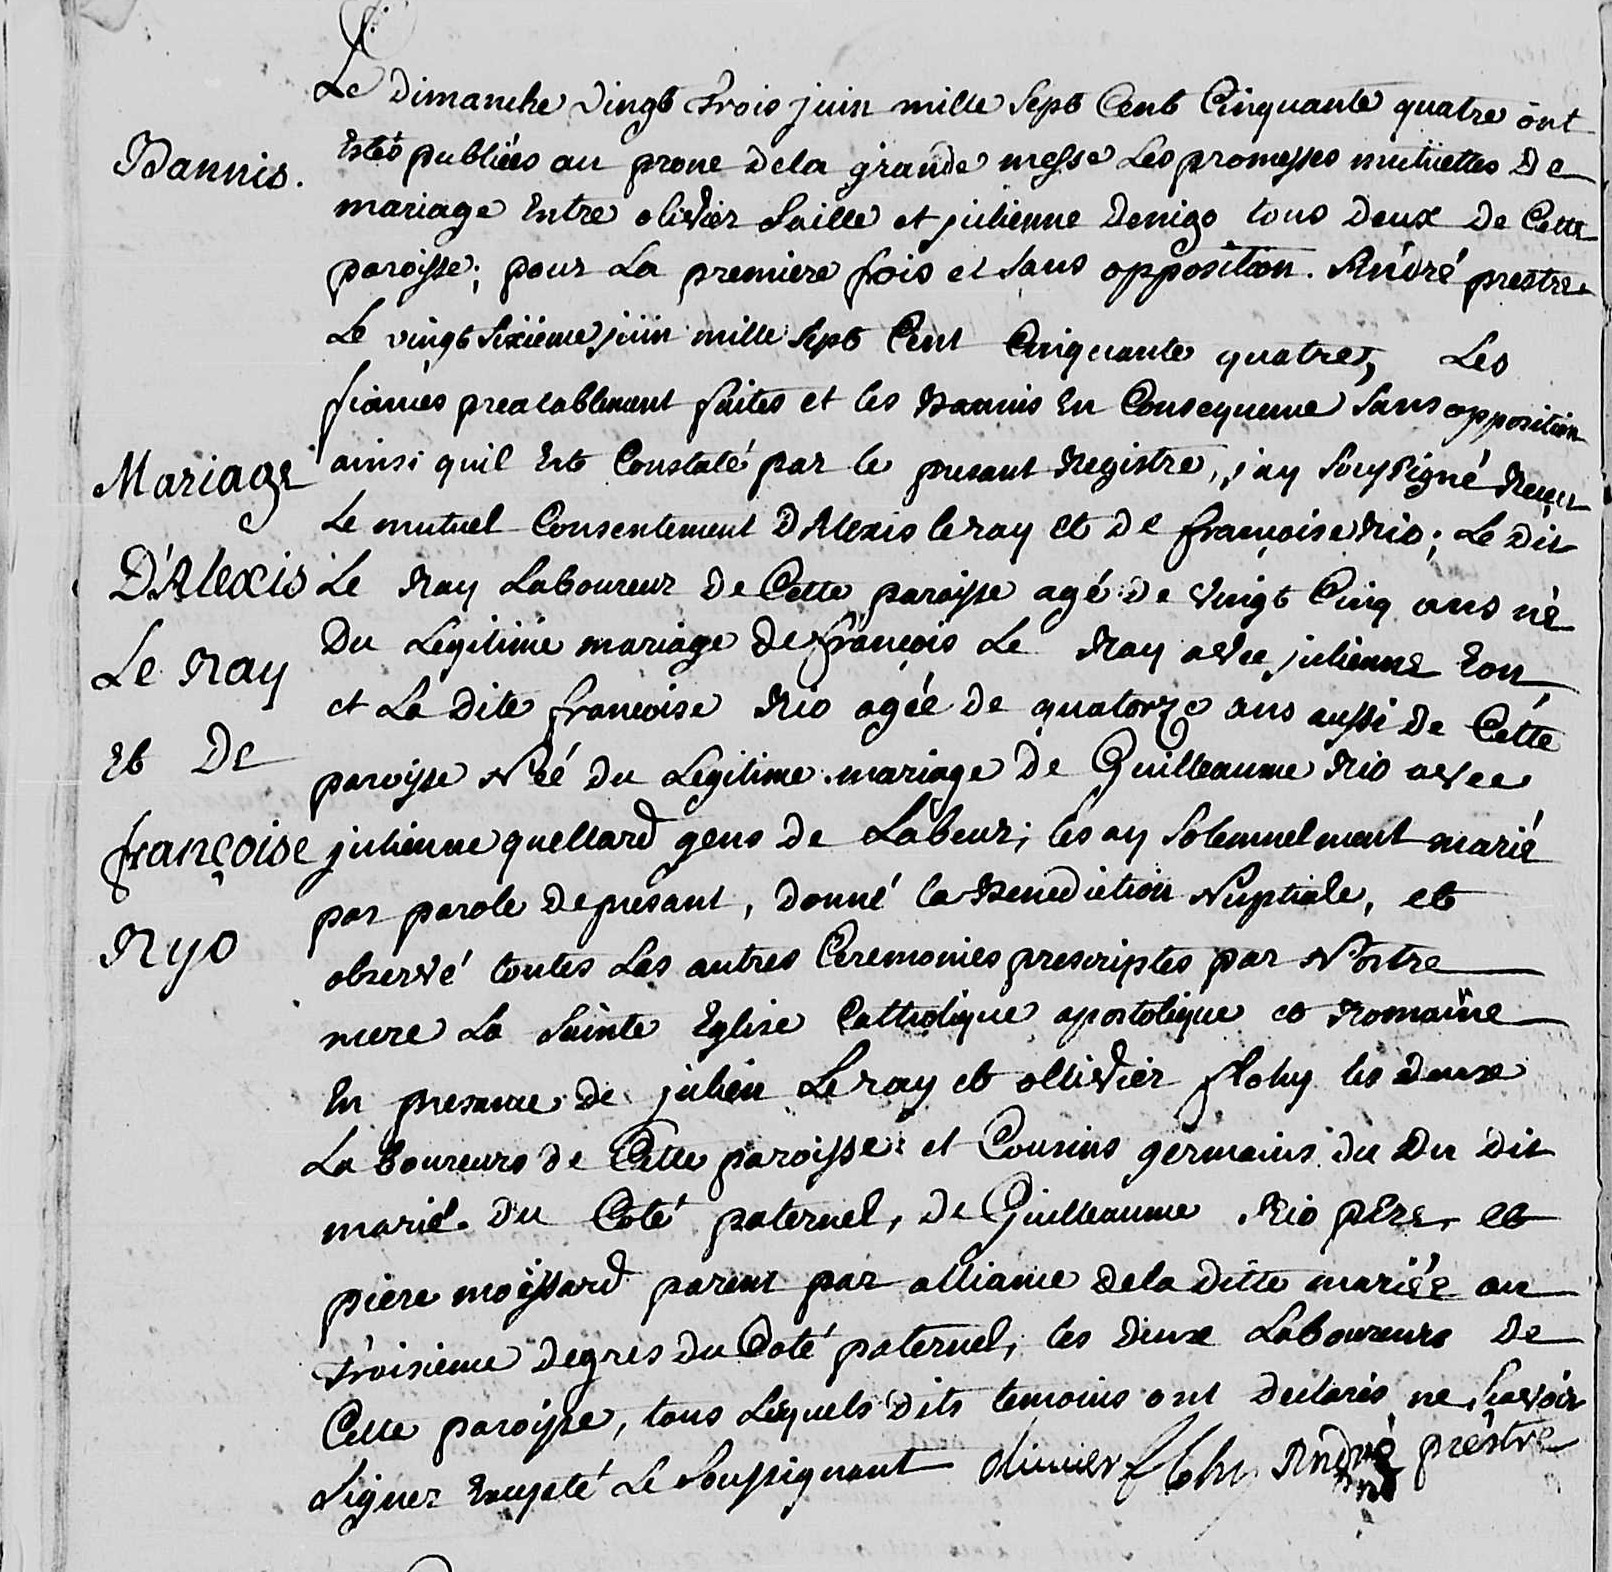 Le Dimanche vingt trois juin mille sept Cent Cinquante quatre ont
Bannis.
Estés publiées au prone dela grande messe Les promesses mutuelles De
mariage Entre olivier Saille et julienne Denigo tous Deux De Cette
paroisse; pour La premiere fois et sans opposition. André prestre
Le vingt sixiéme juin mille sept Cent Cinquante quatre, Les
fiancés prealablement faites et les Bannis En Consequence sans opposition
ainsi quil Est Constaté par le presant Registre, j'ay soussigné Receu
Mariage
Le mutuel Consentement D'Alexis le ray et De françoise Rio; Le Dit
D'Alexis
Le Ray Laboureur De Cette paroisse agé De vingt Cinq ans né
Du Legitime mariage De françois Le Ray avec julienne Eon,
Le Ray
et La Dite françoise Rio agée De quatorze ans aussi De Cette
Et De
paroisse Née Du Legitime mariage De Guilleaume Rio avec
françoise
julienne quellard gens de Labeur; les ay solemnelment marié
par parole De presant, Donné la Benediction Nuptiale, et
Ryo
observé toutes Les autres Ceremonies prescriptes par Nostre
mere La Sainte Eglise Catholique apostolique et Romaine
En presance De julien Le ray et ollivier flohy les Deux
Laboureurs De Cette paroisse et Cousins germains du Du Dit
marié Du Coté paternel, De Guilleaume Rio pere, et
piere moissard parent par alliance Dela Ditte mariée au
troisieme Degrés Du Coté paternel, les Deux Laboureurs De
Cette paroisse, tous Lesquels Dits temoins ont Declarés ne sçavoir
signer Excepté Le soussignant olivier flohy André prêstre